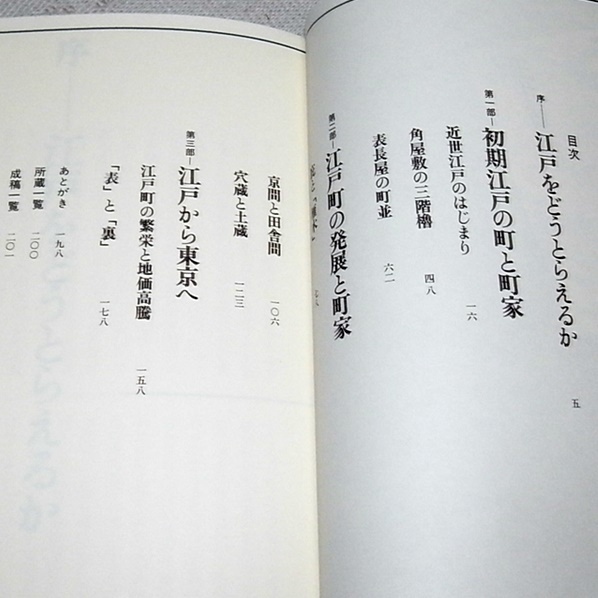 目次
序―江戸をどうとらえるか 五
第一部―初期江戸の町と町家
近世江戸のはじまり 一六
角屋敷の三階櫓 四八
表長屋の町並 六二
第二部―江戸町の発展と町家
京間と田舎間 一〇六
穴蔵と土蔵 一二三
第三部―江戸から東京へ
江戸町の繁栄と地価高騰 一五八
「表」と「裏」 一七八
あとがき 一九八
所蔵一覧 二〇〇
成稿一覧 二〇一